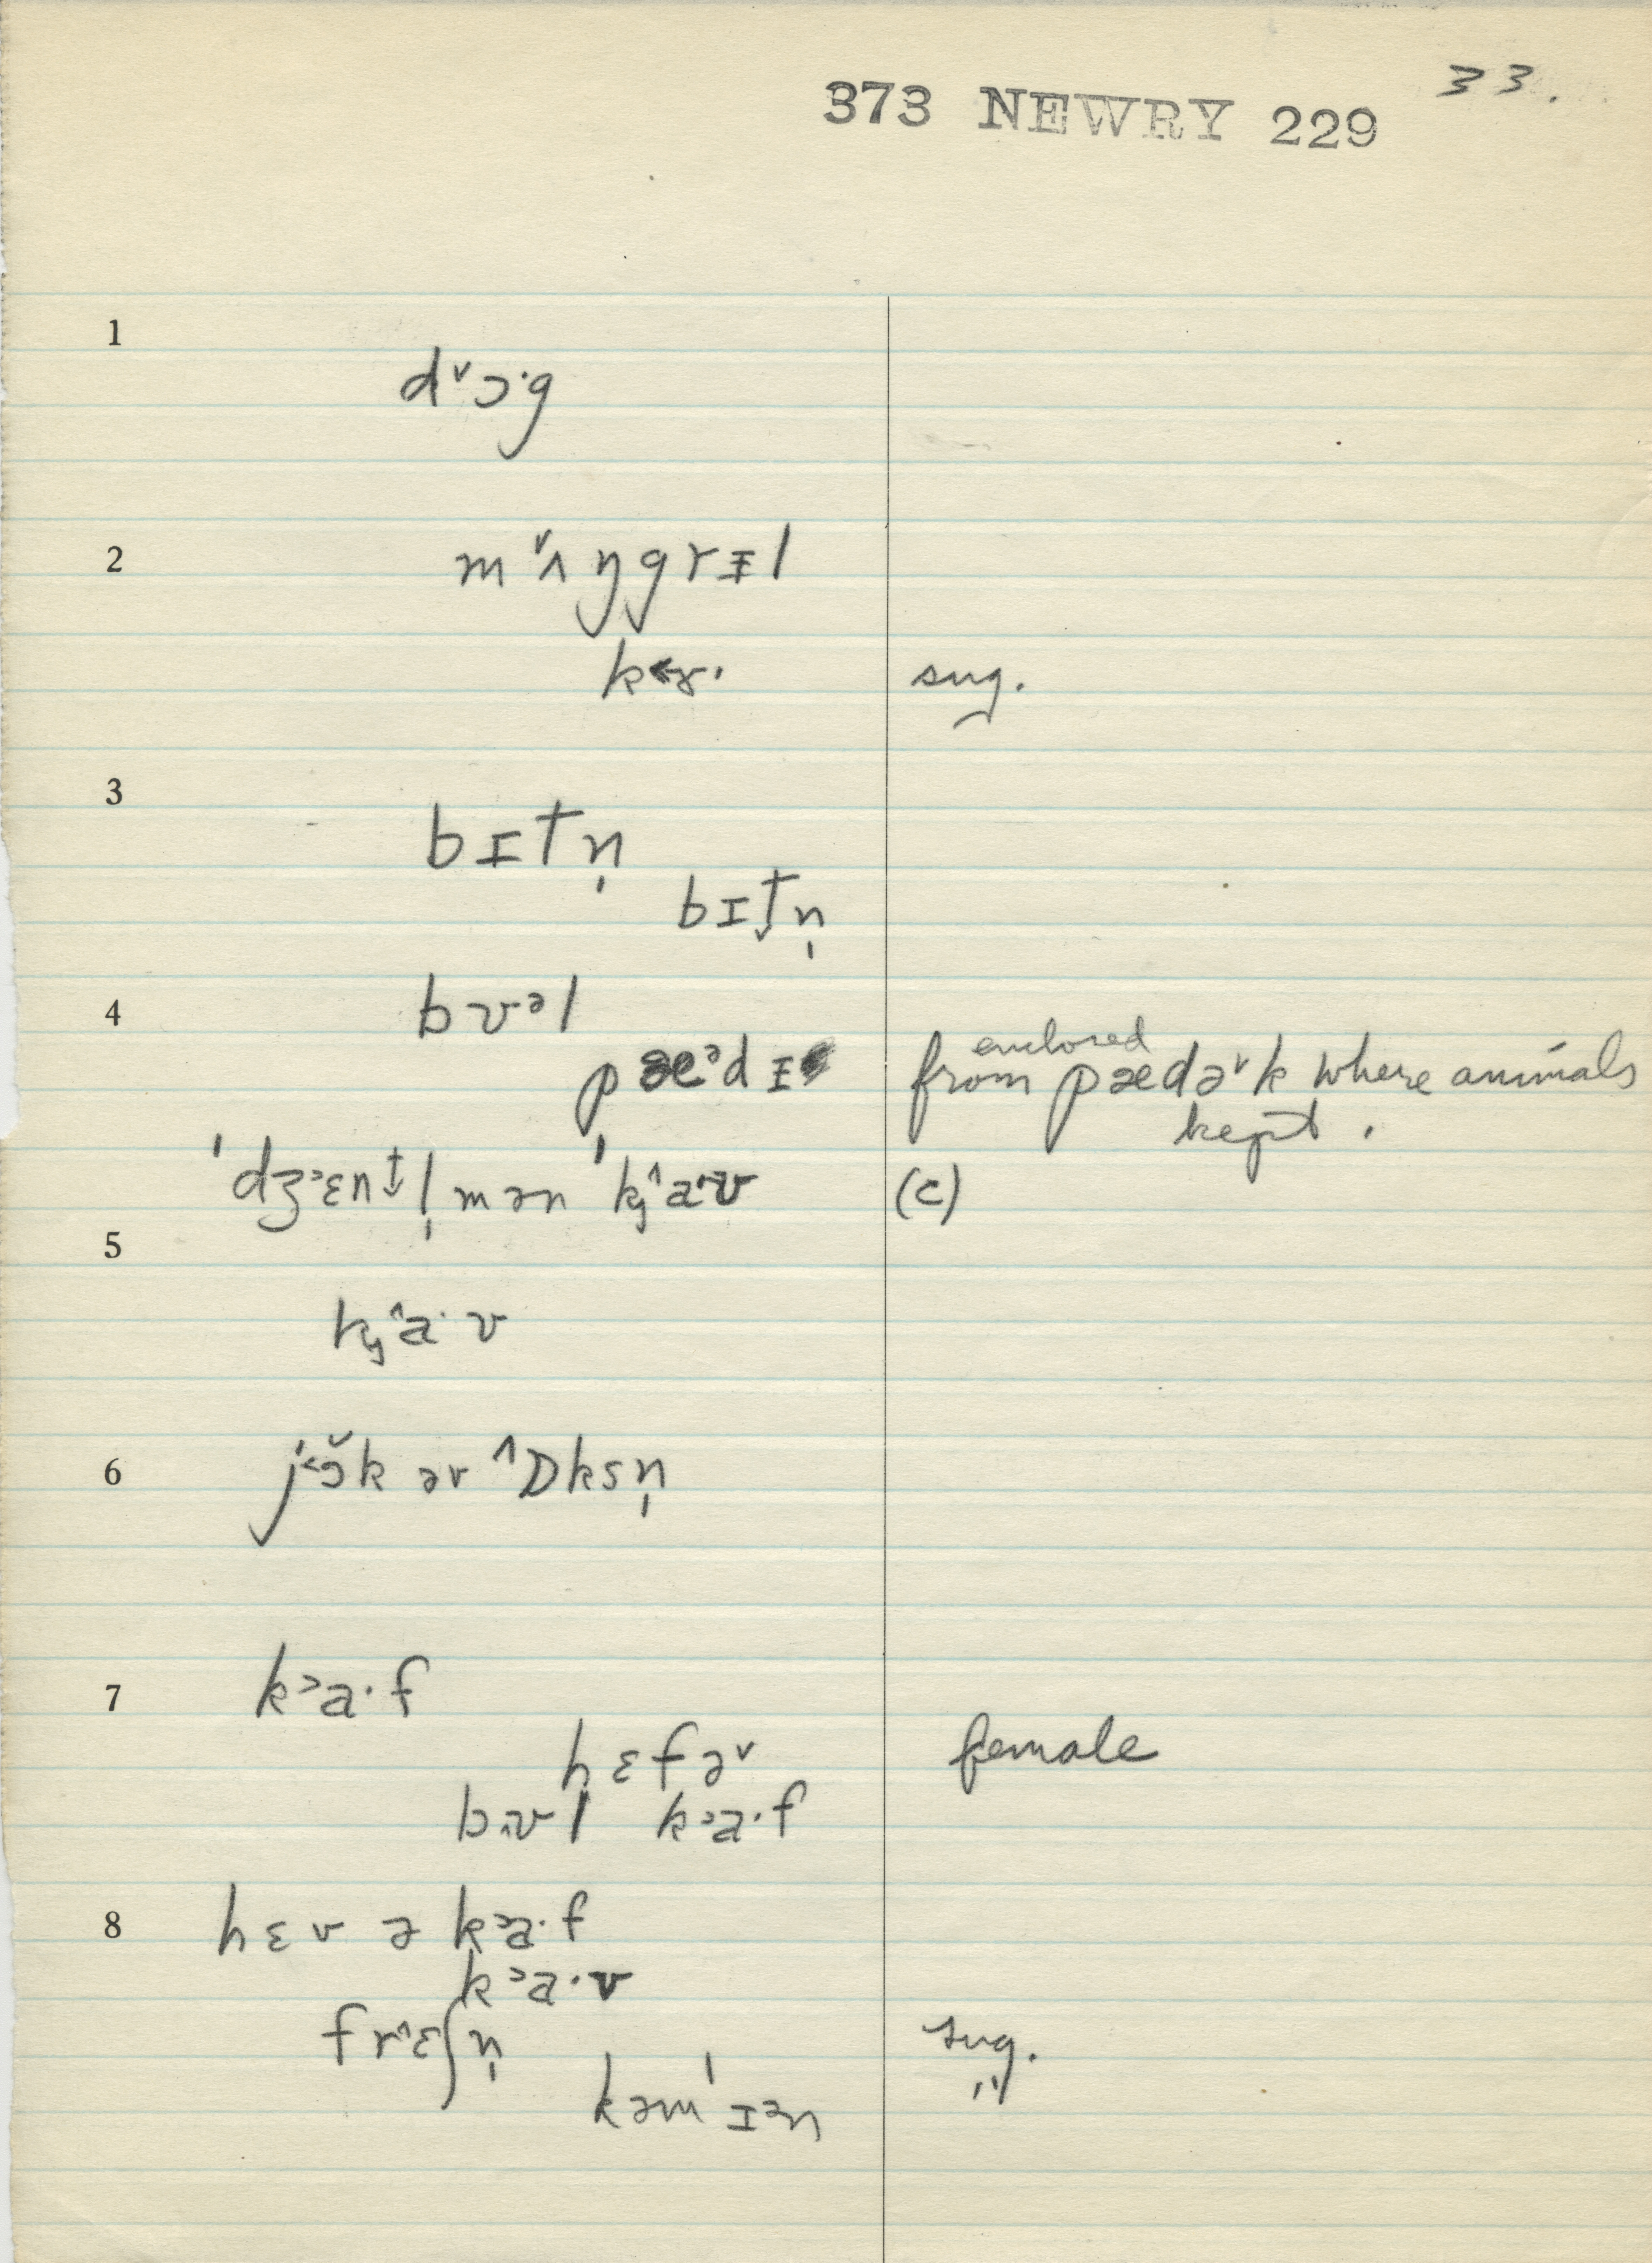 33.
373 NEWRY 229
1
dˇɔ·g
2
mˇʌŋgrɪ̵l
k<ɤ· sug.
3
bɪtn̩
bɪt̬n̩
4
bʊᵊl
enclosed
pæᵊdɪ̵ from pædəˇk where animals
kept.
ˈdʒ˃ɛnt̬l̩mən ˈkj^a·ʊ (c)
5
kj^a·ʊ
6
j<ɔˇk ər ^ɒksn̩
7
k˃a·f
hɛfəˇ female
b^ʊl k˃a·f
8
hɛv ə k˃a·f
k˃a·v
fr^ɛʃn̩ sug.
kəmˈɪᵊn